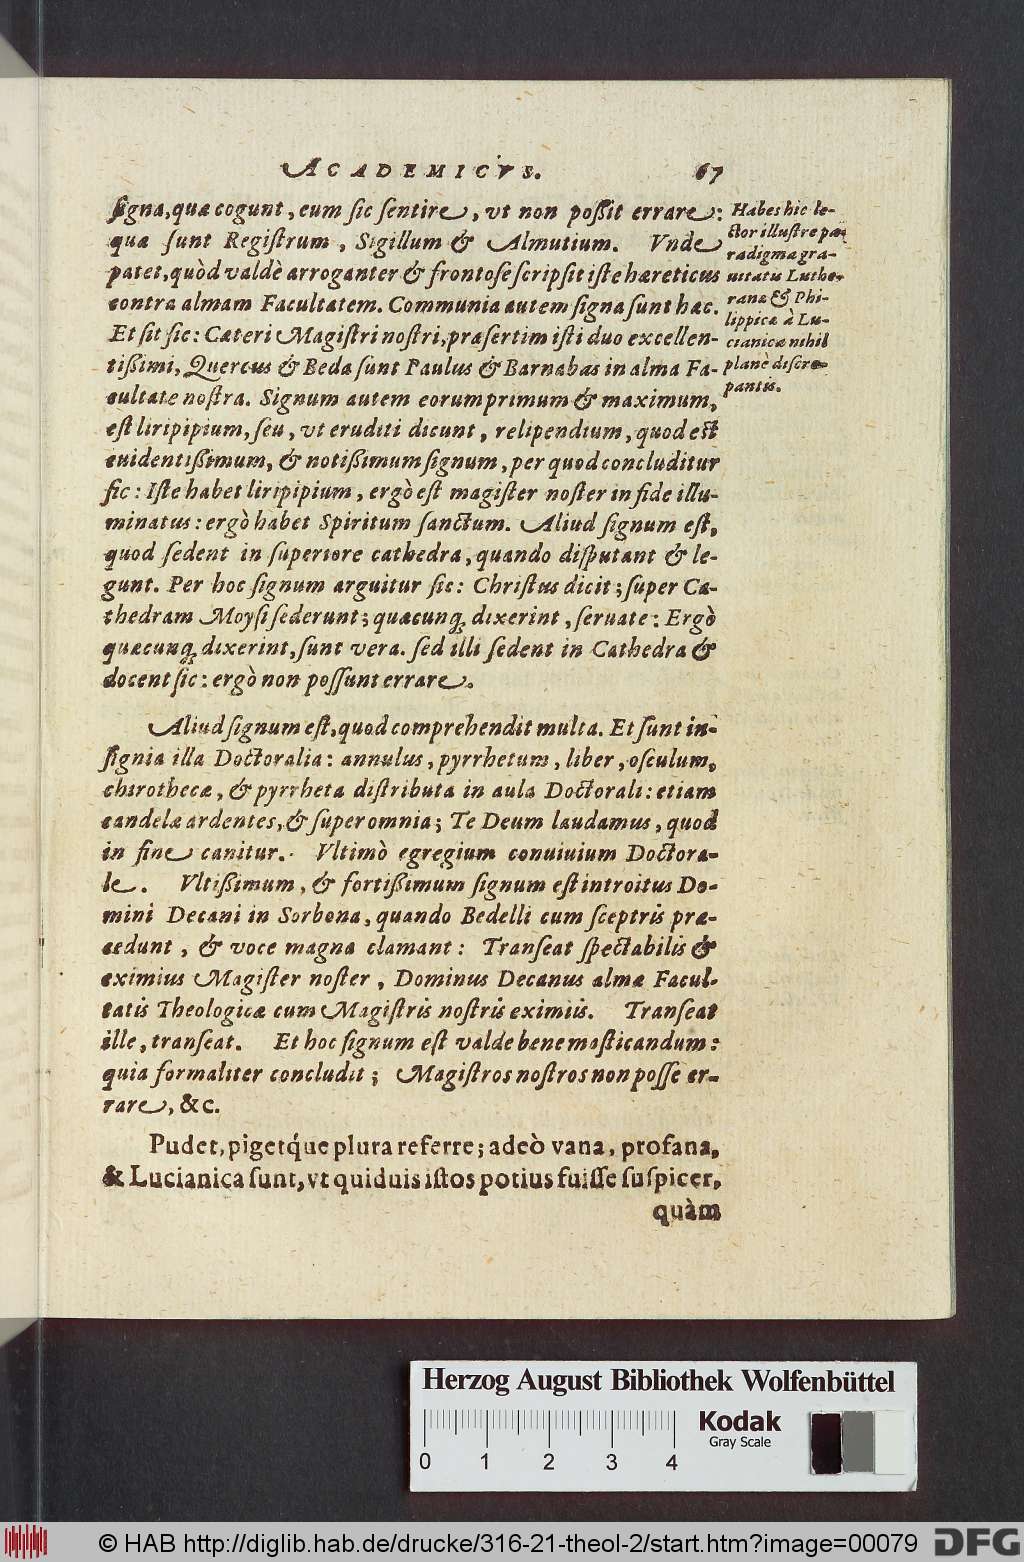 ACADEMICVS. 67
ſigna, quæ cogunt, eum ſic ſentire, vt non poſſit errare:
quæ ſunt Regiſtrum, Sigillum & Almutium. Vnde
patet, quòd valdè arroganter & frontoſe ſcripſit iſte hæreticus
contra almam Facultatem. Communia autem ſigna ſunt hæc.
Et ſit ſic: Cæteri Magiſtri noſtri, præſertim iſti duo excellen-
tißimi, Quercus & Beda ſunt Paulus & Barnabas in alma Fa-
cultate noſtra. Signum autem eorum primum & maximum,
eſt liripipium, ſeu, vt eruditi dicunt, relipendium, quod eſt
euidentißimum, & notißimum ſignum, per quod concluditur
ſic: Iſte habet liripipium, ergò eſt magiſter noſter in fide illu-
minatus: ergò habet Spiritum ſanctum. Aliud ſignum eſt,
quod ſedent in ſuperiore cathedra, quando diſputant & le-
gunt. Per hoc ſignum arguitur ſic: Chriſtus dicit; ſuper Ca-
thedram Moyſi ſederunt; quæcunq; dixerint, ſeruate: Ergò
quæcunq; dixerint, ſunt vera. ſed illi ſedent in Cathedra &
docent ſic: ergò non poſſunt errare.
Habes hic le-
ctor illuſtre pa-
radigma gra-
uitatis Luthe-
ranæ & Phi-
lippicæ à Lu-
cianica nihil
planè diſcre-
pantis.
Aliud ſignum eſt, quod comprehendit multa. Et ſunt in-
ſignia illa Doctoralia: annulus, pyrrhetum, liber, oſculum,
chirothecæ, & pyrrheta diſtributa in aula Doctorali: etiam
candelæ ardentes, & ſuper omnia; Te Deum laudamus, quod
in fine canitur. Vltimò egregium conuiuium Doctora-
le. Vltißimum, & fortißimum ſignum eſt introitus Do-
mini Decani in Sorbona, quando Bedelli cum ſceptris præ-
cedunt, & voce magna clamant: Tranſeat ſpectabilis &
eximius Magiſter noſter, Dominus Decanus almæ Facul-
tatis Theologicæ cum Magiſtris noſtris eximiis. Tranſeat
ille, tranſeat. Et hoc ſignum eſt valde bene maſticandum:
quia formaliter concludit; Magiſtros noſtros non poſſe er-
rare, &c.
Pudet, pigetq́ue plura referre; adeò vana, profana,
& Lucianica ſunt, vt quiduis iſtos potius fuiſſe ſuſpicer,
quàm
Herzog August Bibliothek Wolfenbüttel
Kodak
Gray Scale
0 1 2 3 4
© HAB http://diglib.hab.de/drucke/316-21-theol-2/start.htm?image=00079
DFG